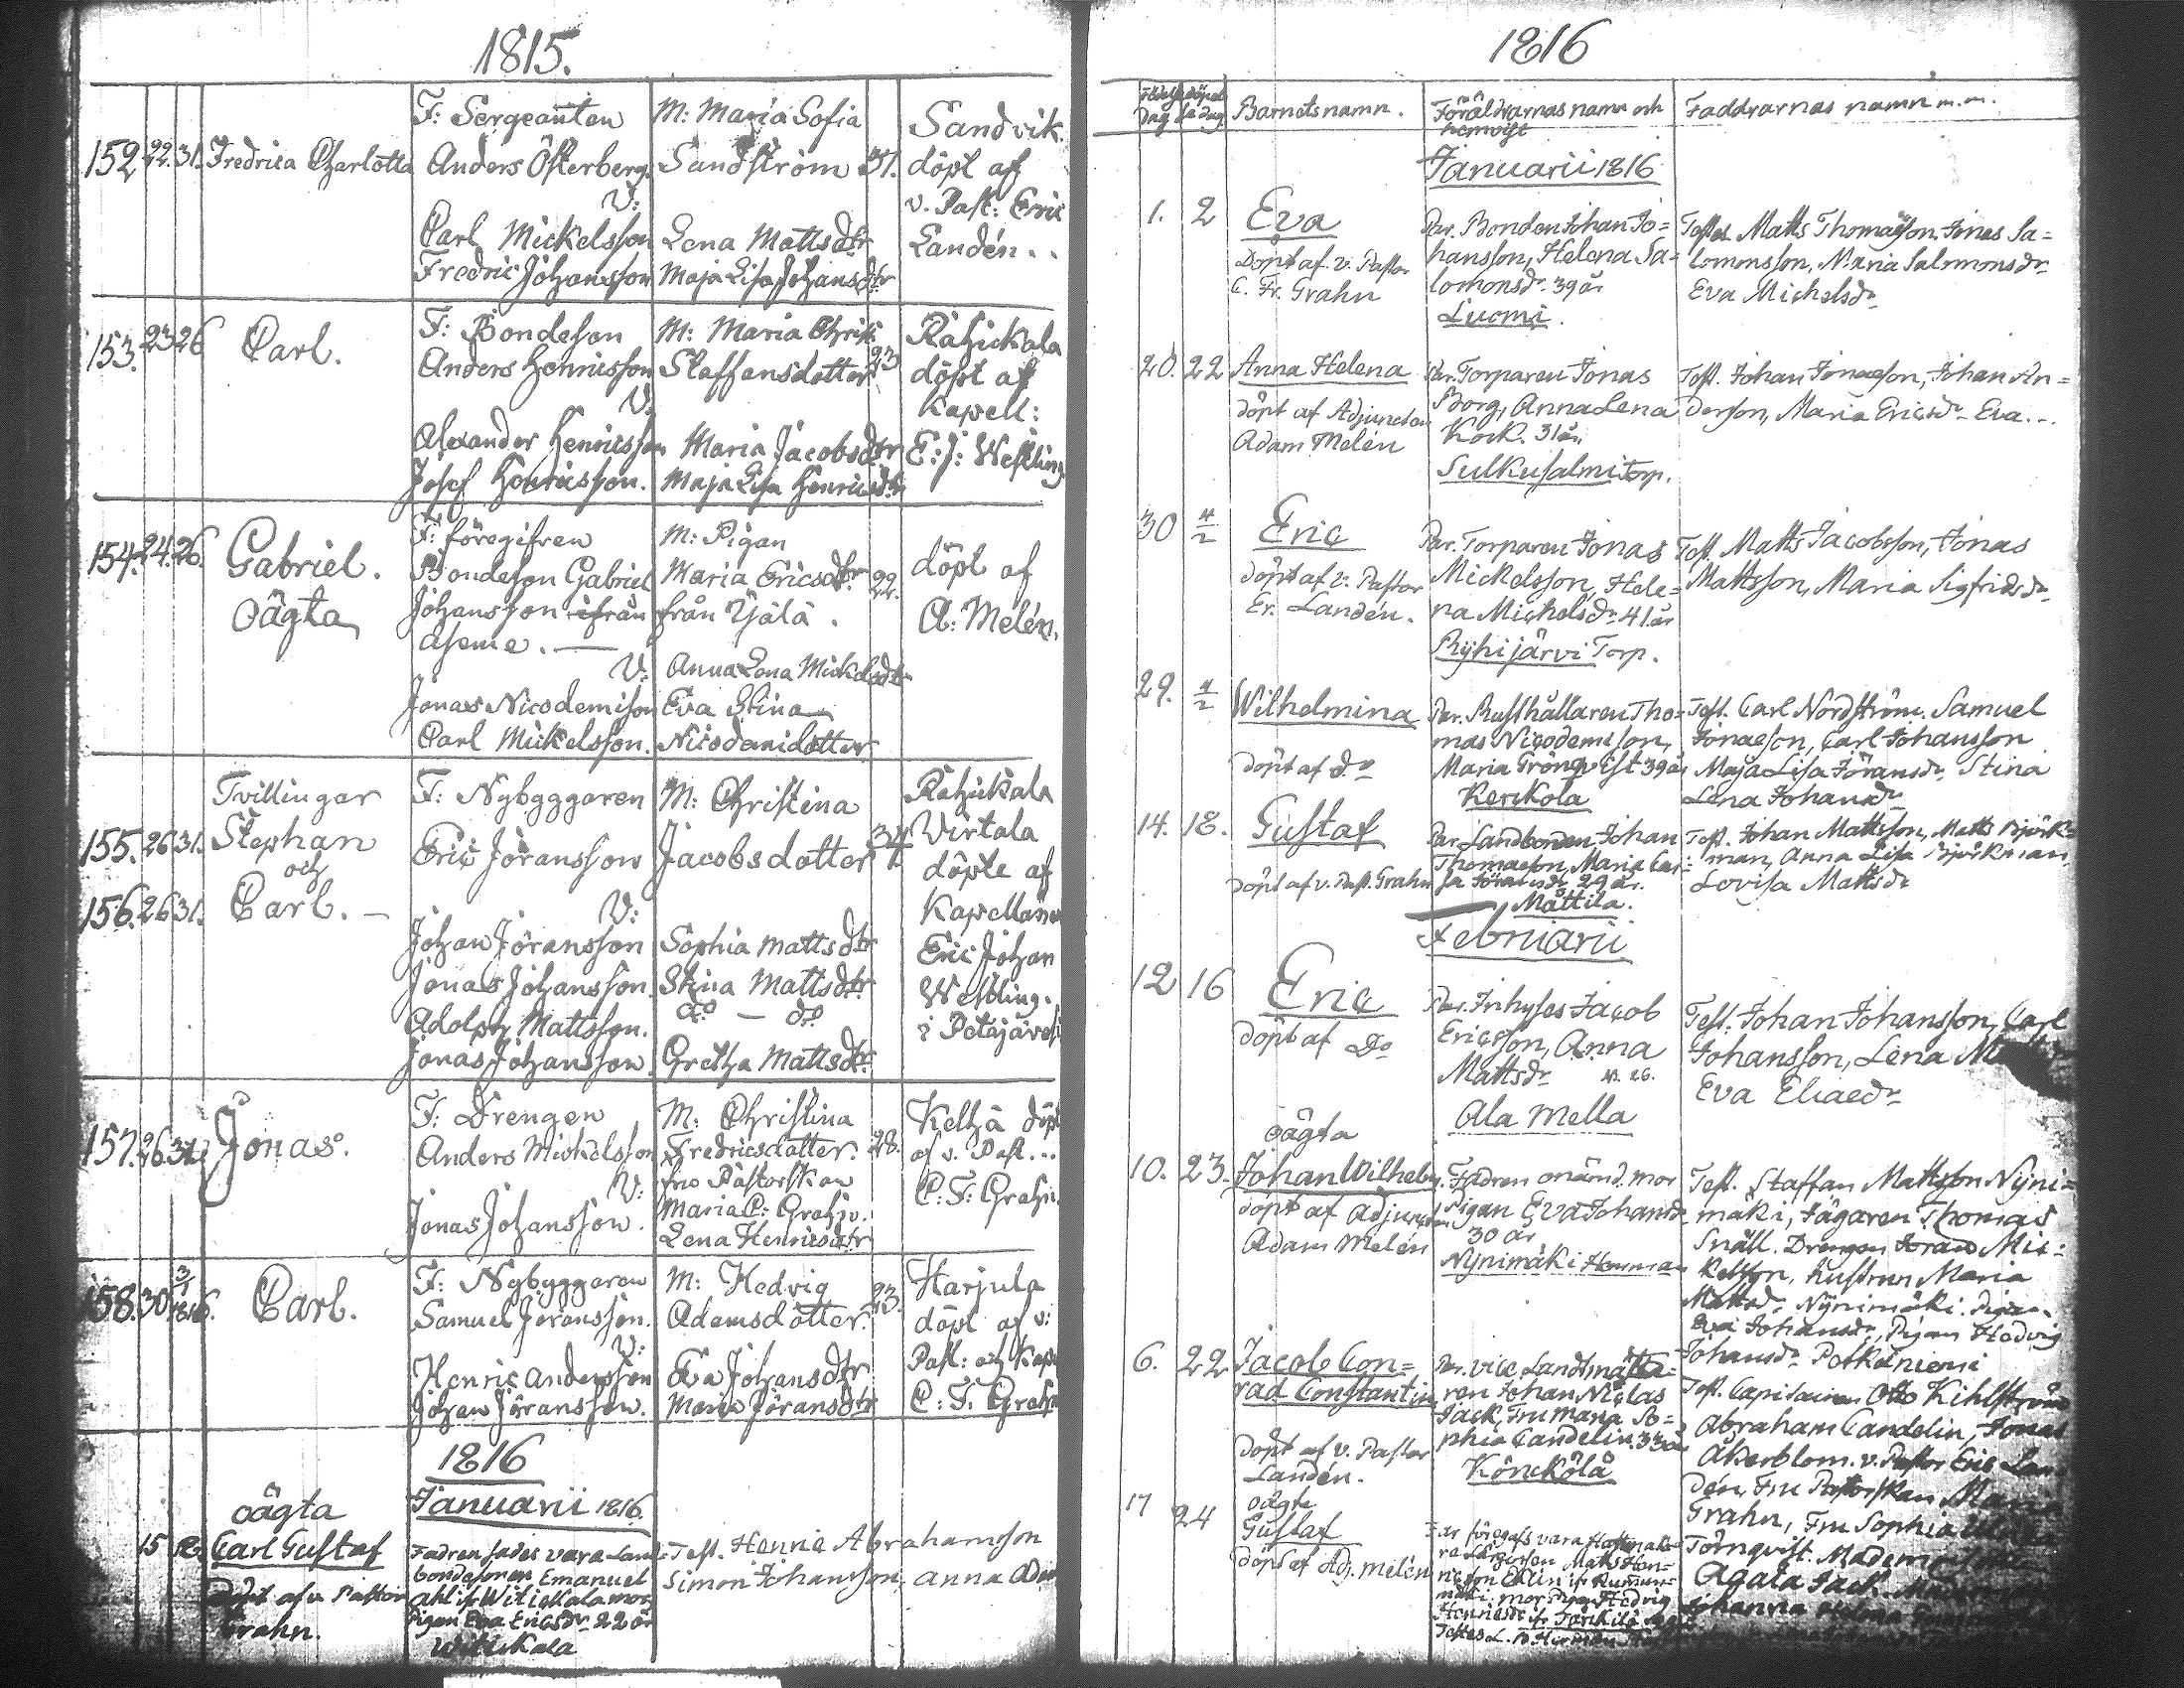 1815.
152 22. 31. Fredrica Charlotta
F: Sergeanten
Anders Österberg.
V:
Carl Mickelsson
Fredric Johansson
M: Maria Sofia
Sandström
Lena Mattsdtr
Maja Lisa Johansdtr
Sandvik
döpt af
v. Past: Eric
Landén..
153. 23 26 Carl.
F: Bondeson
Anders Henricsson
V:
Alexander Henricsson
Josef Henricsson.
M: Maria Christ:
Staffansdotter 23
Maria Jacobsdtr
Maja Lisa Henricsdtr
Rahickala
döpt af
Kapell:
E: J: Westling
154. 24. 26. Gabriel.
oägta
F: föregifven
Bondeson Gabriel
Johansson ifrån
Aseme.
V:
Jonas Nicodemisson
Carl Mickelsson.
M: Pigan
Maria Ericsdtr 22.
från Yjälä.
Anna Lena Mickelsdtr
Eva Stina
Nicodemidotter
döpt af
A: Melén.
Tvillingar
155. 26 31. Stephan
och
156. 26 31. Carl. –
F: Nybyggaren
Eric Jöransson
V:
Johan Jöransson
Jonas Johansson.
Adolph Mattsson.
Jonas Johansson
M: Christina
Jacobsdotter 34
Sophia Mattsdtr
Stina Mattsdtr
do – do
Gretha Mattsdtr
Rahickala
Virtala
döpte af
Kapellanen
Eric Johan
Westling.
i Petäjäves
157. 26 31 Jonas.
F: Drengen
Anders Mickelsson
V:
Jonas Johansson.
M: Christina
Fredricsdotter. 28.
fru Pastorskan
Maria C: Grahn.
Lena Henricsdtr
Keltjä döpt
af v. Past...
C: F: Grahn.
158. 30 3/1 1816. Carl.
F: Nybyggaren
Samuel Jöransson.
V:
Henric Andersson
Johan Jöransson.
M: Hedvig
Adamsdotter. 23.
Eva Johansdtr
Maria Jöransdtr
Harjula
döpt af v:
Past: och Kap
C: F. Grahn
1816
Januarii 1816.
oägta
15 Carl Gustaf
Döpt af v. Pastor
Grahn.
Fadren sades vara Land
bondesonen Emanuel
ifr Witickala mor
Pigan Eva Ericsdr 22 år
Witickala
Test. Henric Abrahamsson
Simon Johansson, Anna
1816
Födelse Dag döpelse dag Barnets namn. Föräldrarnas namn och
hemvist Faddrarnas namn m.m.
Januarii 1816
1. 2 Eva
Döpt af v. Pastor
C. Fr. Grahn
Par. Bonden Johan Jo=
hansson, Helena Sa=
lomonsdr 39 år
Luomi.
Testes Matts Thomasson Jonas Sa=
lomonsson, Maria Salomonsdr
Eva Michelsdr
20. 22 Anna Helena
döpt af Adjuncten
Adam Melén
Par. Torparen Jonas
Borg, Anna Lena
Kock. 31 år.
Sulkusalmi Torp.
Test. Johan Jonaeson, Johan An=
derson, Maria Ericsdr Eva...
30 4/2 Eric
döpt af v. Pastor
Er. Landén.
Par. Torparen Jonas
Mickelsson, Hele=
na Michelsdr 41 år
Ryhijärvi Torp.
Test. Matts Jacobsson, Jonas
Mattsson, Maria Sigfridsdr
29. 4/2 Wilhelmina
döpt af do
Par. Rusthållaren Tho=
mas Nicodemisson,
Maria Grönqvist 39 år
Kerckola
Test. Carl Nordström. Samuel
Jonaeson, Carl Johansson
Maja Lisa Jöransdr, Stina
Lena Johansdr
14. 18. Gustaf
döpt af v. Past. Grahn
Par. Landbonden Johan
Thomaeson, Maria Cai=
sa Jöransdr 29 år.
Mattila.
Test. Johan Mattsson, Matts Björk=
man, Anna Lisa Björkman,
Lovisa Mattsdr
Februarii
12 16 Eric
döpt af Do
Par. Inhyses Jacob
Ericsson, Anna
Mattsdr 26.
Ala Mella
Test. Johan Johansson, Carl
Johansson, Lena
Eva Eliaedr
oägta
10. 23. Johan Wilhelm
döpt af Adjuncten
Adam Melén
Fadren onämd. mor
Pigan Eva Johansdr
30 år
Nynimäki Hemman
Test. Staffan Mattsson Nyni=
mäki, Jägaren Thomas
Snäll. Drengen Jöran Mic=
kelsson, hustrun Maria
Mattsdr, Nynimäki. Pigan
Eva Johansdr, Pigan Hedvig
Johansdr Potkälniemi
6. 22 Jacob Con=
rad Constantin
döpt af v. Pastor
Landén.
Par. vice Landtmäta=
ren Johan Niclas
Jack, Fru Maria So=
phia Candelin. 33 år
Könckölä
Test. Capitainen Otto Kihlström
Abraham Candelin, Jonas
Åkerblom. v. Pastor Eric Lan=
dén, Fru Pastorskan Maria
Grahn, Fru Sophia
Törnqvist. Mademoiselle
Agata Jack.
Johanna Helena
17 24 oägta
Gustaf
döpt af Adj. Melén
Far föregafs vara
Matts Hen=
ricsson
mor Pigan Hedvig
Henricsdr
Testes